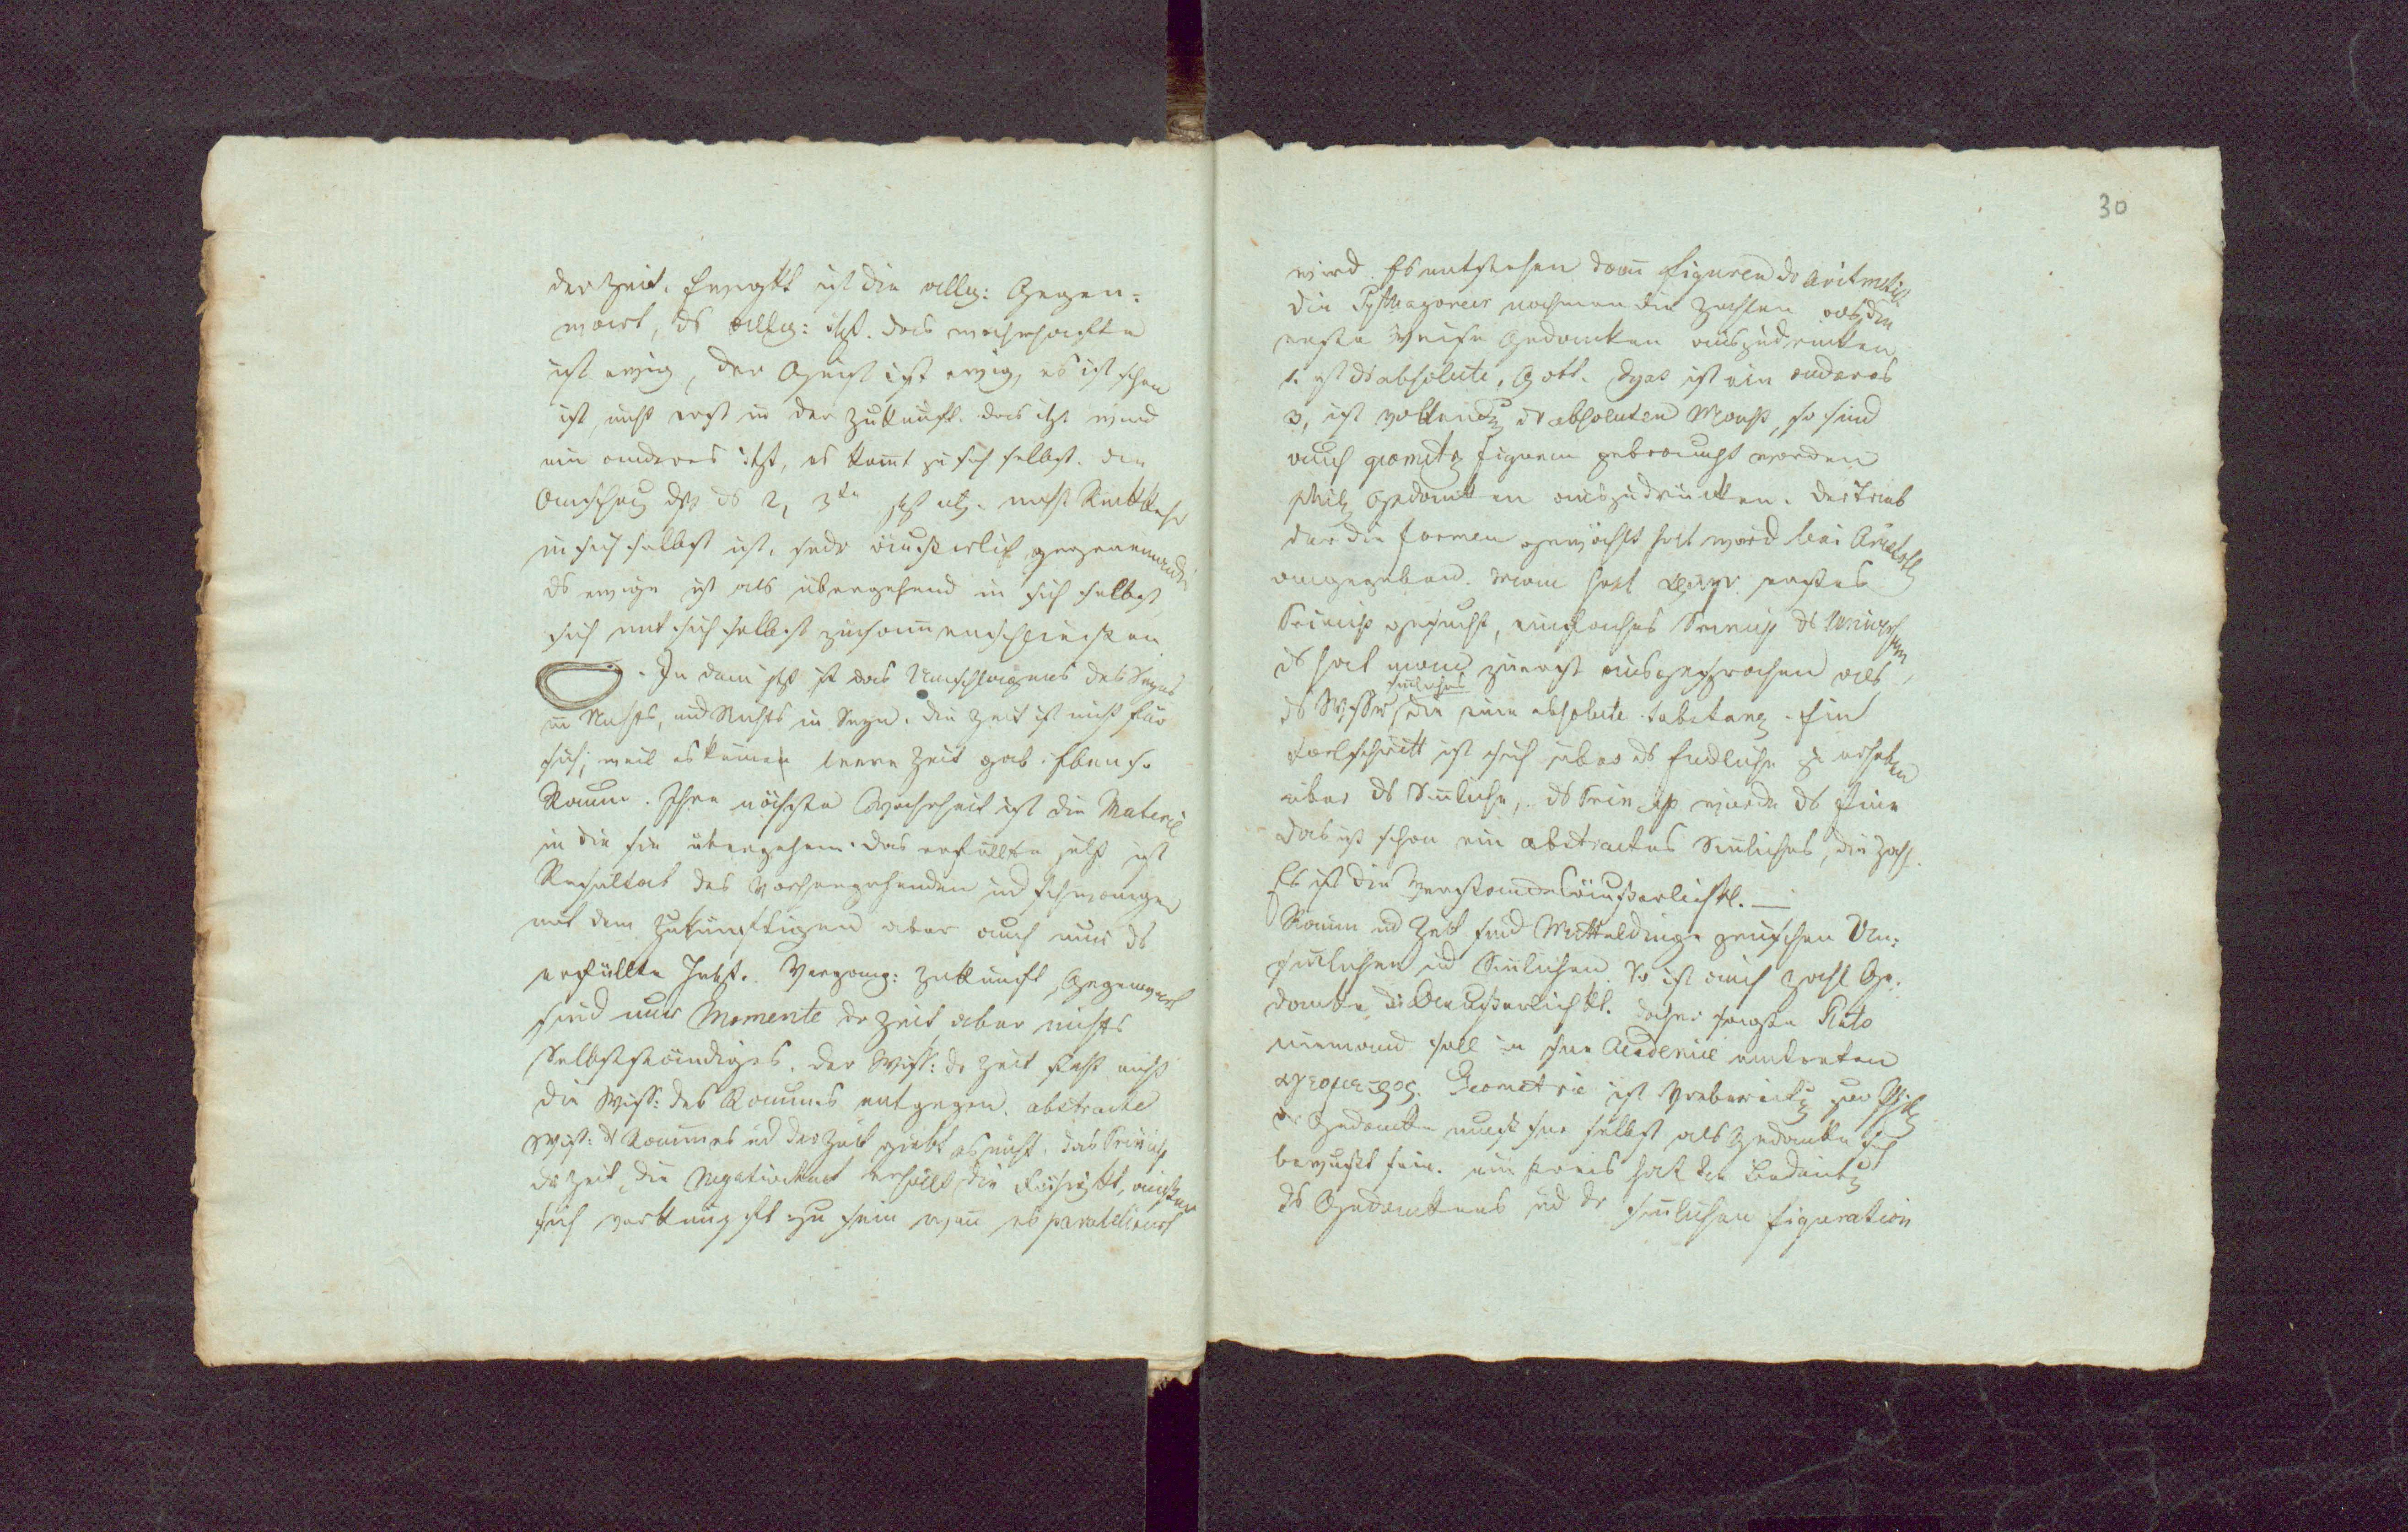 der Zeit. Ewigkt ist die allg: Gegen-
wart, ds allg: itzt. das wahrhafte
ist ewig, der Geist ist ewig, es ist schon
ist, nicht erst in der Zukunft. das itzt wird
ein anderes itzt, es komt zu sich selbst. die
ds 2, 3te nicht Rückkehr
in sich selbst ist, sodr äusserlich gegeneinander
ds ewige ist als übergehend in sich selbst
sich mit sich selbst zusammenschliessen
In dem itzt ist das Umschlagens des Seyns
in Nichts, und Nichts in Seyn. die Zeit ist nicht für
sich; weil es keinen leere Zeit gab. Ebenso
Raum. Ihre nächste Wahrheit ist die Materie
in die sie übergehen. das erfüllte itzt ist
Resultat des Vorhergehenden und schwanger
mit dem Zukünftigen aber auch nur ds
erfüllte Jetzt. Vergang: Zukunft, Gegenwart
sind nur Momente dr Zeit aber nichts
Selbstständiges. der Wiss: dr Zeit steht nicht
die Wiss: des Raumes entgegen. abstracte
Wiss: ds Raumes und der Zeit giebt es nicht. das Princip
dr Zeit, die Negativität erhällt die Fähigkt, äusser
sich verknüpft zu sein wen es paralelisirt
30
wird. Es entstehen dann Figuren dr Aritmetik
die Pythagoreer nahmen die Zahlen als die
erste Weise Gedanken auszudrücken
1. ist ds absolute, Gott. Dyas ist ein anderes
3, ist ds absoluten so sind
auch geomet: Figuren gebraucht worden
phil: Gedanken auszudrücken. der Trieb
der die Formen gewählt hat wird bei Aristotl
angegeben. Man hat erstes
Princip gesucht, einfaches Princip ds
ds hat man zuerst ausgesprochen als
sinliches
ds Wasser, die eine absolute substanz. Ein
Fortschritt ist sich über ds Endliche zu erheben
über ds Sinliche, ds Princip wurde ds Eine
das ist schon ein abstractes Sinliches, die Zahl.
Es ist die Verstandesäußerlichkt. —
Raum und Zeit sind Mitteldinge zwischen Un-
sinlichen und Sinlichen. So ist auch Zahl Ge-
danke dr Aeusserlichkt. daher sagte Plato
niemand soll in seine Academie eintreten
αγεομετρος. Geometrie ist Vorbereitg zur Ph:
dr Gedanke muss sich selbst als Gedanke sich
bewusst sein. ein Kreis hat die Bedeutg
ds Gedankens und dr sinlichen figuration